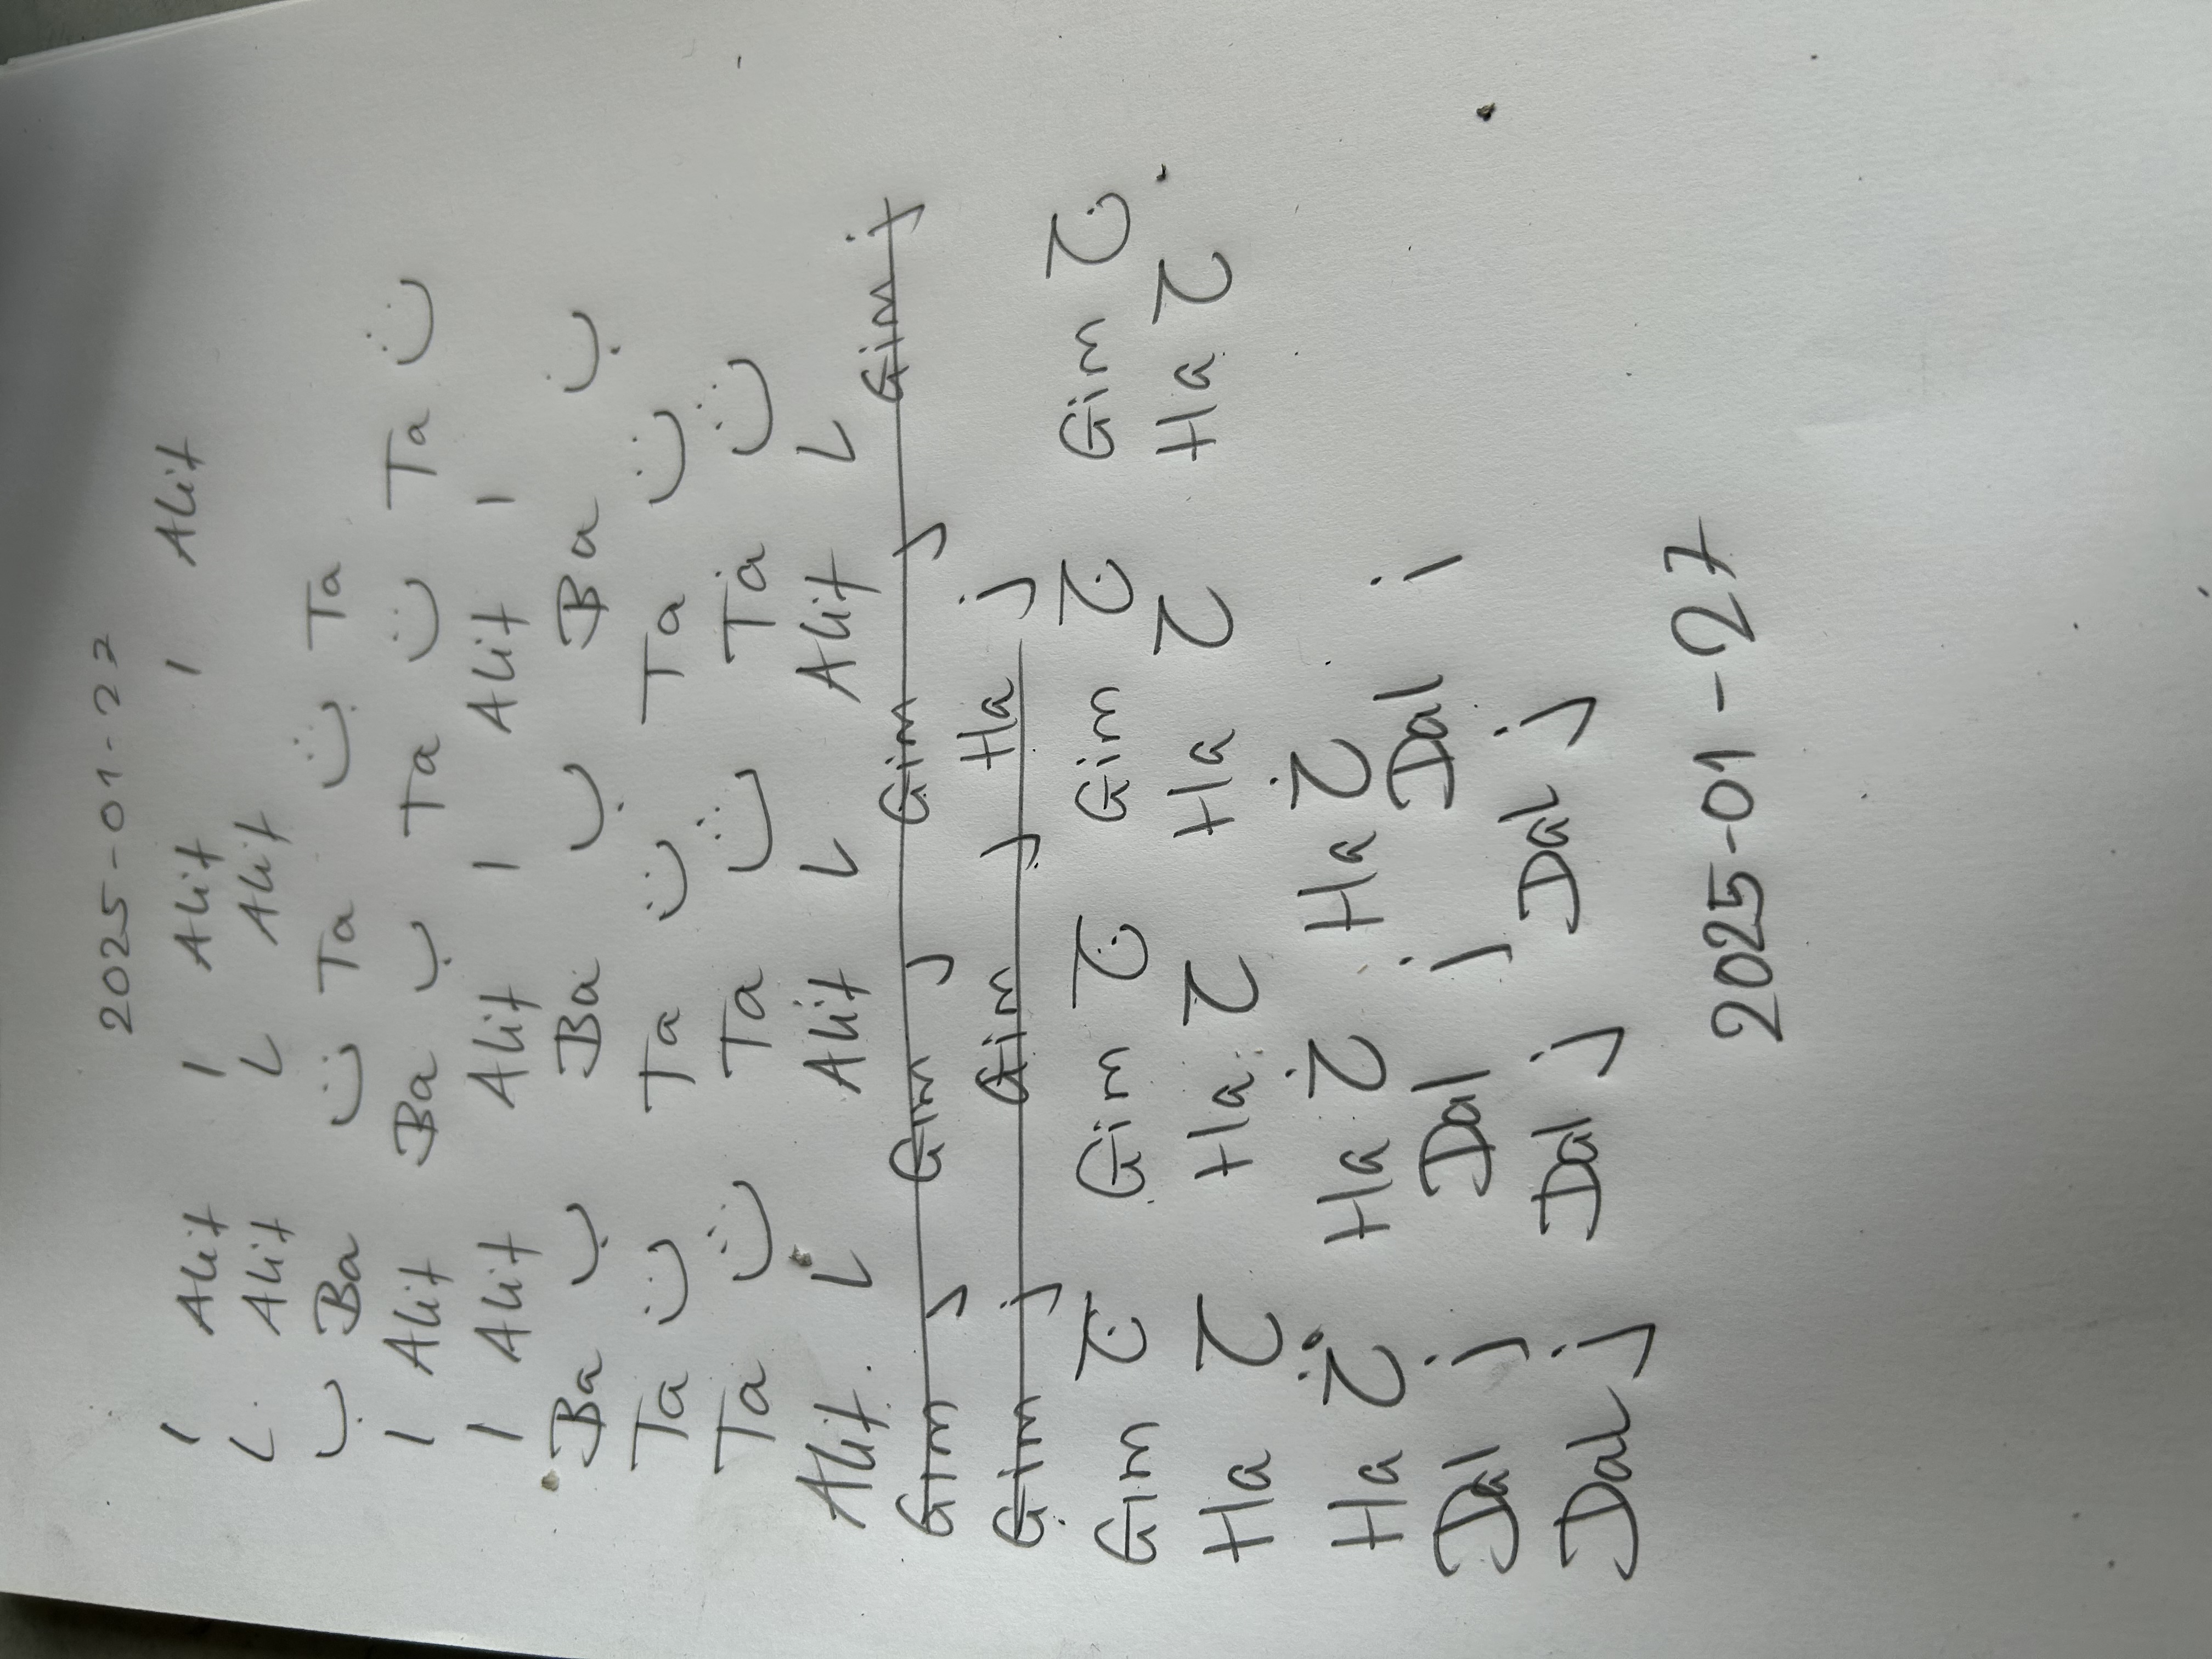 2025-01-27
ا Alif ا Alif ا Alif
L Alif L Alif
ب Ba ت Ta ث Ta
ا Alif Ba ب Ta ت Ta ث
ا Alif Alif ا Alif ا
Ba ب Ba ب Ba ب
Ta ت Ta ت Ta ت
Ta ث Ta ث Ta ث
Alif L Alif L Alif L
Gim j Gim j Gim j Gim j
Gim j Gim j Ha j
Gim ج Gim ج Gim ج Gim ج
Ha ح Ha ح Ha ح Ha ح
Ha خ Ha خ Ha خ
Dal j Dal j Dal j
Dal j Dal j Dal j
2025-01-27